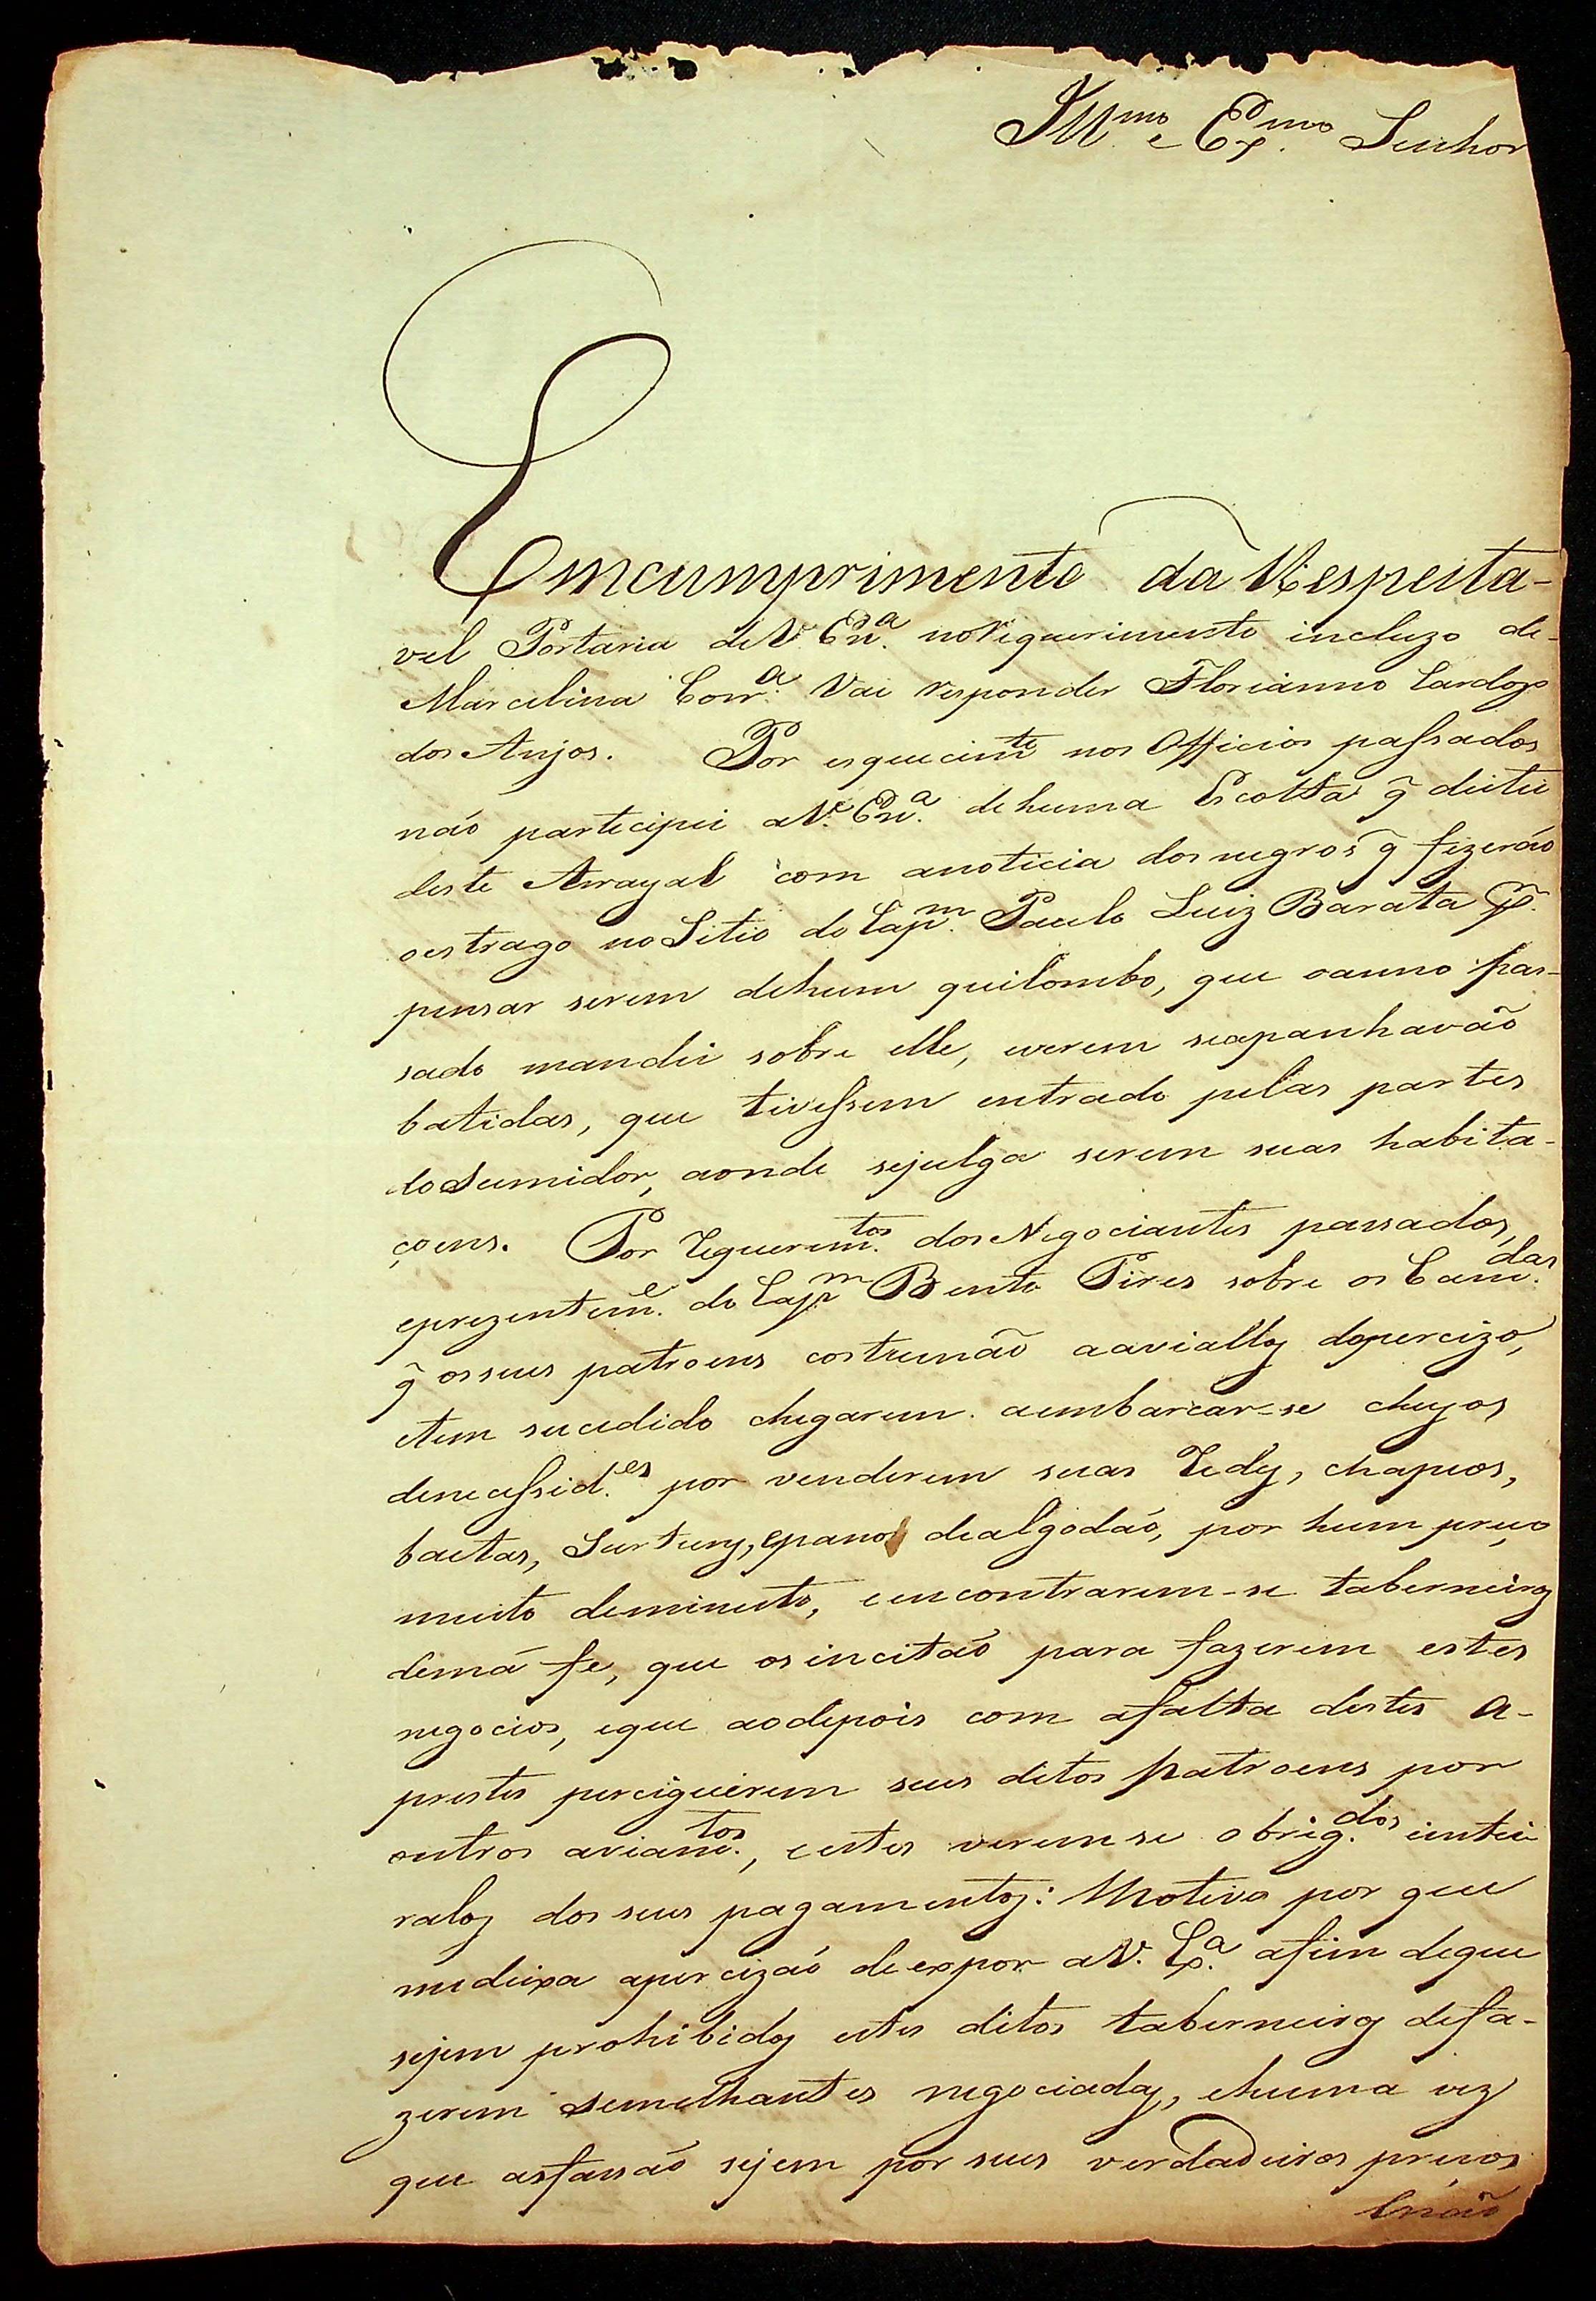 Ill.mo e Ex.mo Senhor
Emcumprimento da Respeita-
vel Portaria de V. Ex.a no Requerimento incluzo de
Marcelina Corr.a Vai responder Florianno Cardozo
dos Anjos. Por esquecim.te nos Officios passados
não partecipei a V. Ex.a de huma Escolta q̃ deitei
deste Arrayal com anoticia dos negros q̃ fizerão
oestrago no Sitio do Cap.m Paulo Luiz Barata p.r
pensar serem dehum quilombo, que oanno pas-
sado mandei sobre elle, everem seapanhavão
batidas, que tivessem entrado pelas partes
do Sumidor, aonde sejulga serem suas habita-
çoens. Por Requerim.tos dos Negociantes passados,
eprezentem.e do Cap.m Bento Pires sobre os Cam.das
q̃ osseus patroens costumão aavialloz dopercizo,
etem sucedido chegarem aembarcar-se cheyos
denecessid.es por venderem suas Redes, chapeos,
baetas, Surtuns, epanos dealgodão, por hum preço
muito deminuto, eencontrarem-se taberneiros
demá fe, que osincitão para fazerem estes
negocios, eque aodepois com afalta destes a-
prestes perciguirem seus ditos patroens por
outros aviam.tos, eestes veremse obrig.dos intei
ralos dos seus pagamentos: Motivo por que
medeixa apercizão de expor a V. Ex.a afim deque
sejem prohibidos estes ditos taberneiros defa-
zerem semelhantes negociadas, ehuma vez
que asfassão sejem por seus verdadeiros preços
Enão